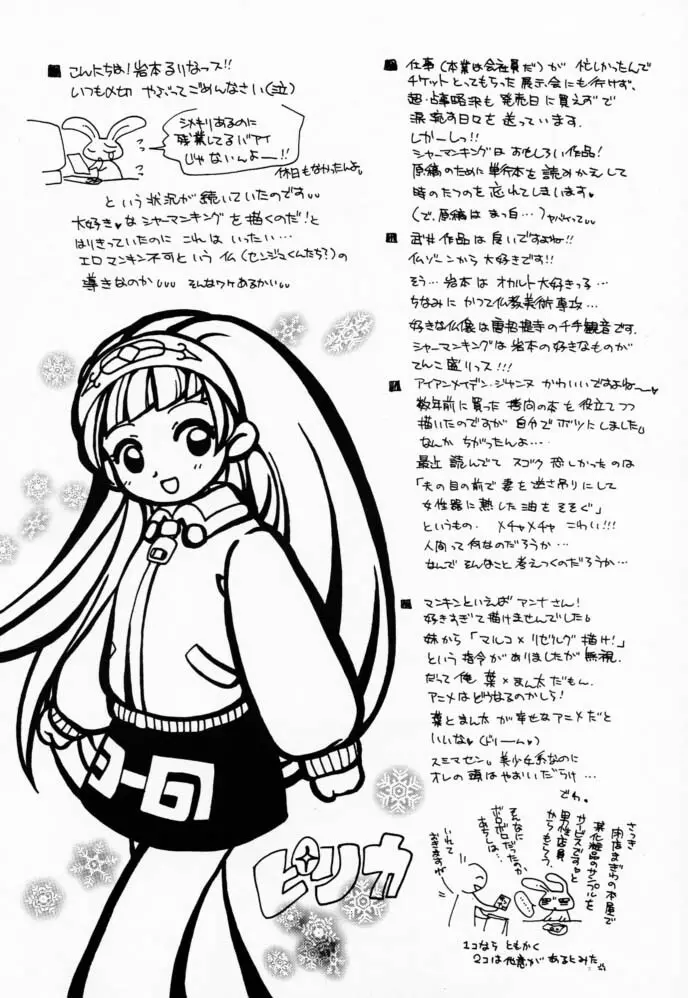 こんにちは!岩本るりなっス!!
いつも〆切 やぶってごめんなさい(泣)
シメキリあるのに
残業してるバアイ
じゃないんよー!!
休日もなかったんよ。
という状況が続いていたのです
大好き♥なシャーマンキングを描くのだ!と
はりきっていたのに これはいったい…
エロマンキン不可という仏(センジュくんたち?)の
導きなのか そんなワケあるかい
ピリカ
仕事(本業は会社員だ)が 忙しかったんで
チケットとってもらった展示会にも行けず、
超・占事略決も発売日に買えずで
涙 する日々を送っています.
しかーしっ!!
シャーマンキングはおもしろい作品!
原稿のために単行本を読みかえして
時のたつのを忘れてしまいます♥
(で、原稿はまっ白…)ヤバイって
武井作品は良いですよねー!!
仏ゾーンから大好きです!!
そう…岩本はオカルト大好きっ子…
ちなみにかつて仏教美術専攻…
好きな仏像は唐招提寺の千手観音です.
シャーマンキングは岩本の好きなものが
てんこ盛りっス!!!
アイアンメイデン・ジャンヌ かわいいですよねー♥
数年前に買った拷問の本を役立てつつ
描いたのですが 自分でボツにしました。
なんか ちがったんよ….
最近 読んでて スゴク 恐しかったのは
「夫の目の前で妻を逆さ吊りにして
女性器に熱した油をそそぐ」
というもの. メチャメチャ こわい!!!
人間って何なのだろうか…
なんで そんなこと 考えつくのだろうか…
マンキンといえば アンナさん!
好きすぎて描けませんでした。
妹から「マルコ×リゼルグ描け!」
という指令がありましたが無視.
だって俺 葉×まん太だもん.
アニメはどうなるのかしら!
葉とまん太が幸せなアニメだと
いいな♥(ドリーム♥)
スミマセン。美少女系なのに
オレの頭はやおいだらけ…
でわ.
さっき
閉店まぎわの本屋で
某化粧品のサンプルを
サービスですと
男性店員
からもらう.
そんなに
ボロボロだったのか
あたしは…
いれて
おきますが
1コなら ともかく
2コは他意があるとみた.